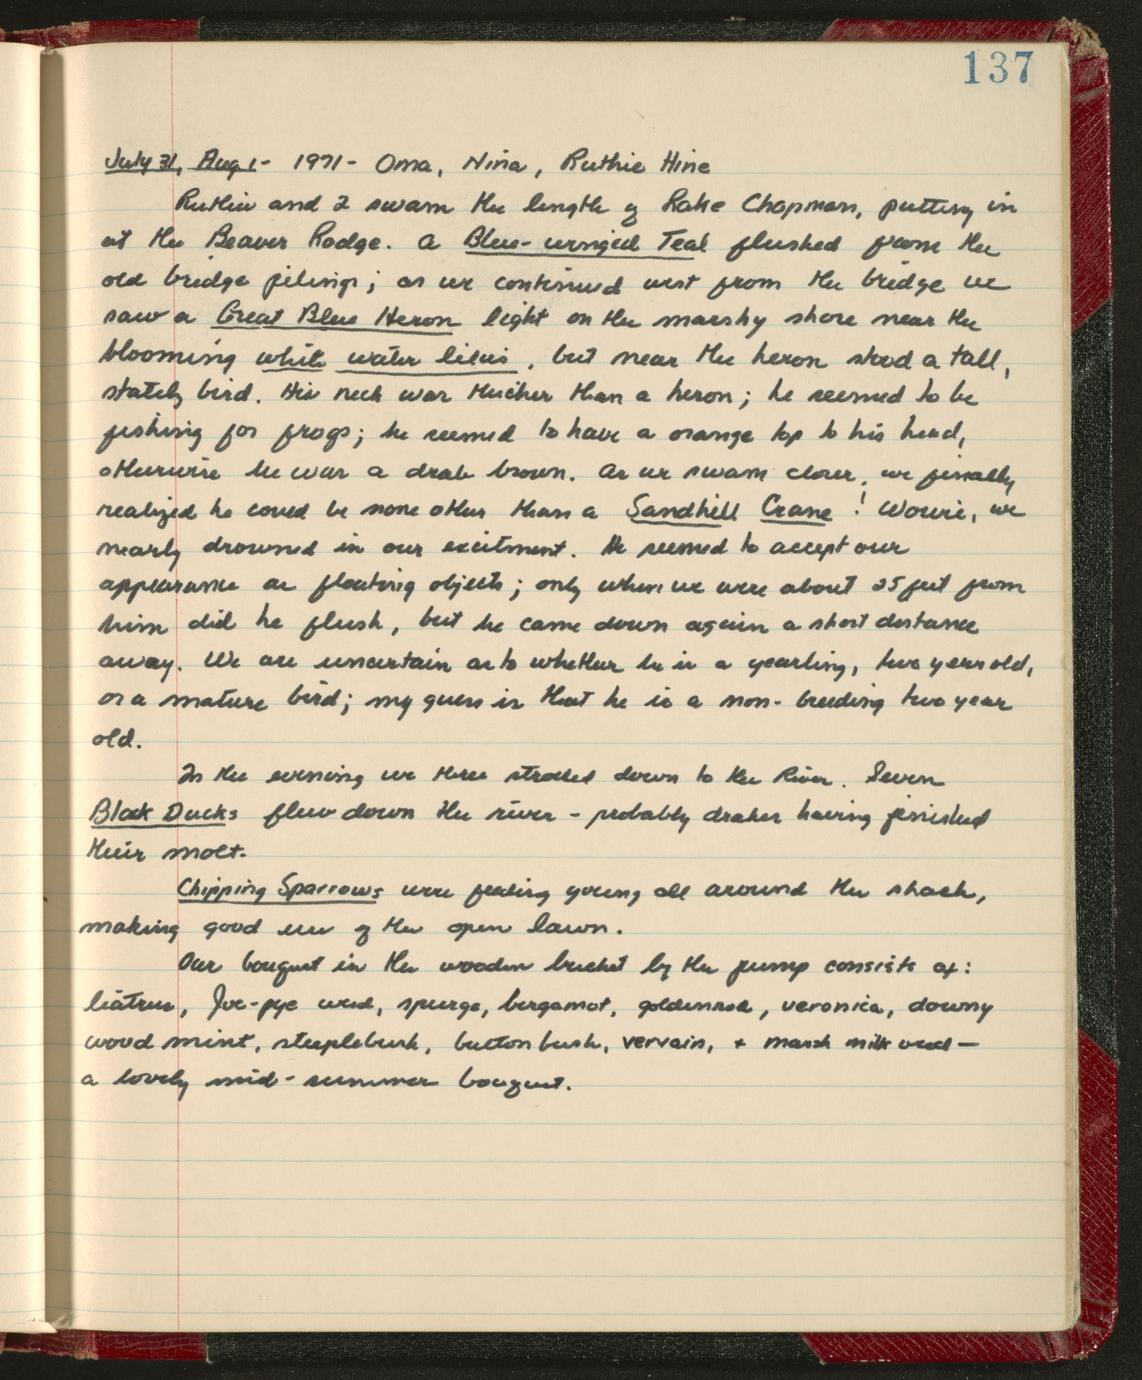 137
July 31, Aug 1- 1971- Oma, Nina, Ruthie Hine
Ruthie and I swam the length of Lake Chapman, putting in
at the Beaver Lodge. A Blue-winged Teal flushed from the
old bridge pilings; as we continued west from the bridge we
saw a Great Blue Heron light on the marshy shore near the
blooming white water lilies, but near the heron stood a tall,
stately bird. His neck was thicker than a heron; he seemed to be
fishing for frogs; he seemed to have a orange top to his head,
otherwise he was a drab brown. As we swam closer, we finally
realized he could be none other than a Sandhill Crane! Wowie, we
nearly drowned in our excitment. He seemed to accept our
appearance as floating objects; only when we were about 25 feet from
him did he flush, but he came down again a short distance
away. We are uncertain as to whether he is a yearling, two years old,
or a mature bird; my guess is that he is a non-breeding two year
old.
In the evening we three strolled down to the River. Seven
Black Ducks flew down the river - probably drakes having finished
their molt.
Chipping Sparrows were feeding young all around the shack,
making good use of the open lawn.
Our bouquet in the wooden bucket by the pump consists of:
liatrus, Joe-pye weed, spurge, bergamot, goldenrod, veronica, downy
wood mint, steeplebush, buttonbush, vervain, + marsh milk weed—
a lovely mid-summer bouquet.